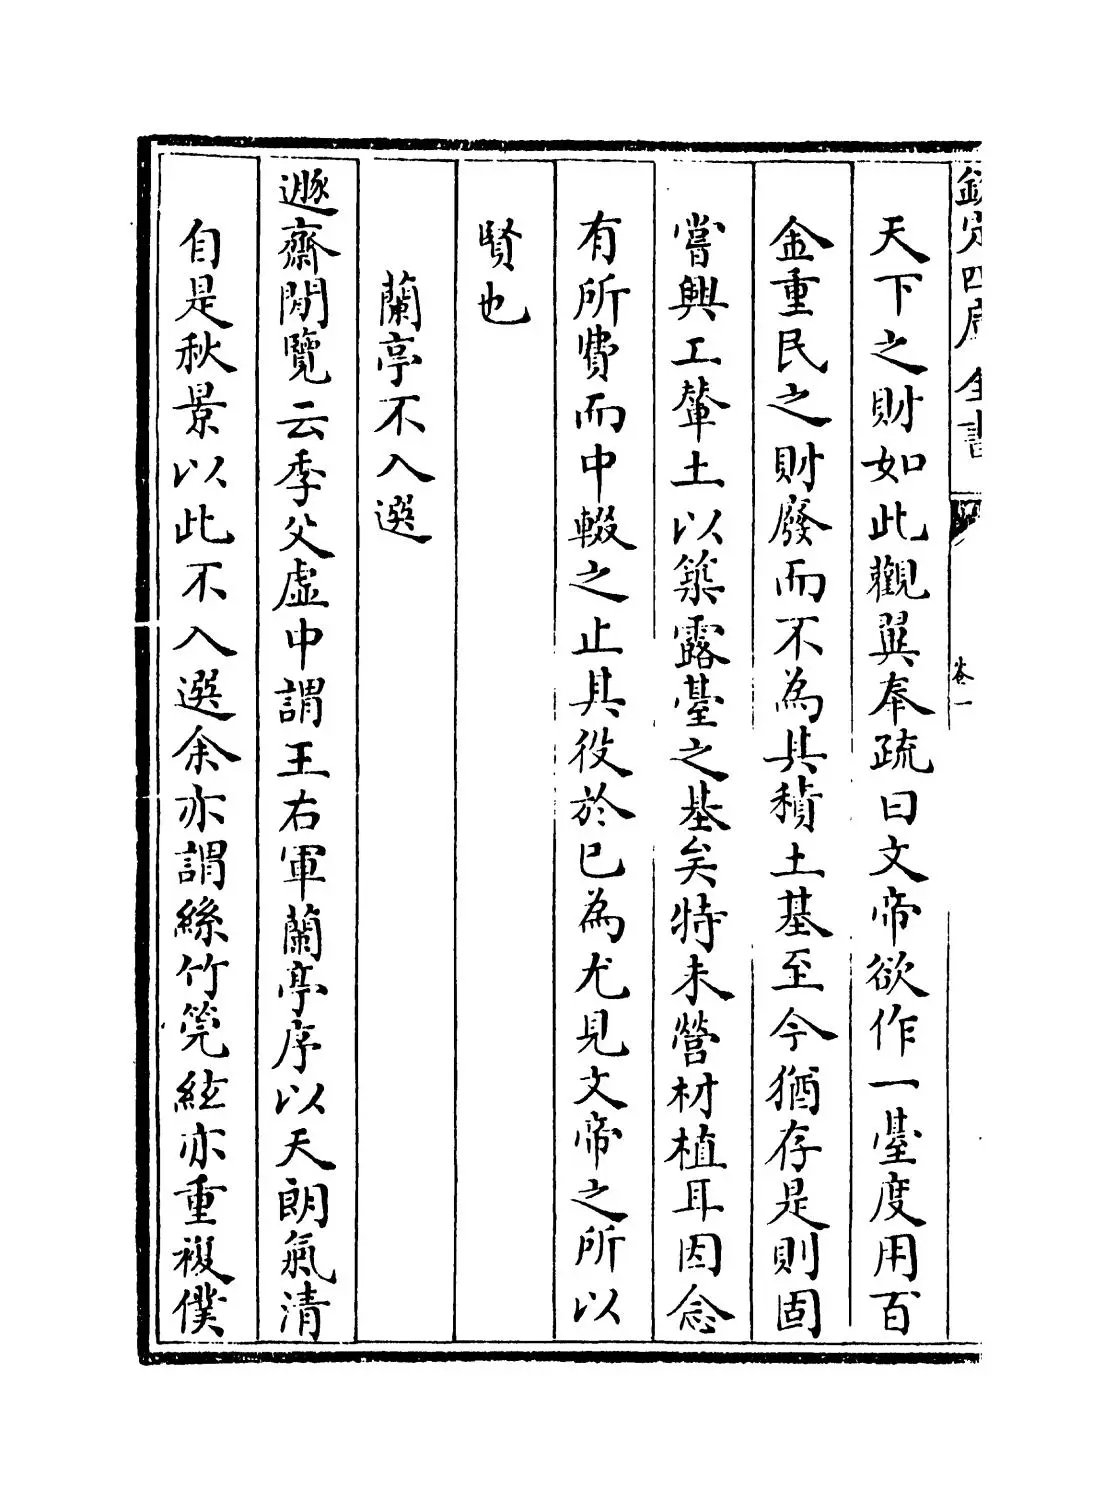 欽定四庫全書
卷一
天下之財如此觀翼奉疏曰文帝欲作一臺度用百
金重民之財廢而不為其積土基至今猶存是則固
嘗興工輦土以築露臺之基矣特未營材植耳因念
有所費而中輟之止其役於已為尤見文帝之所以
賢也
蘭亭不入選
遯齋閒覽云季父虛中謂王右軍蘭亭序以天朗氣清
自是秋景以此不入選余亦謂絲竹筦絃亦重複僕